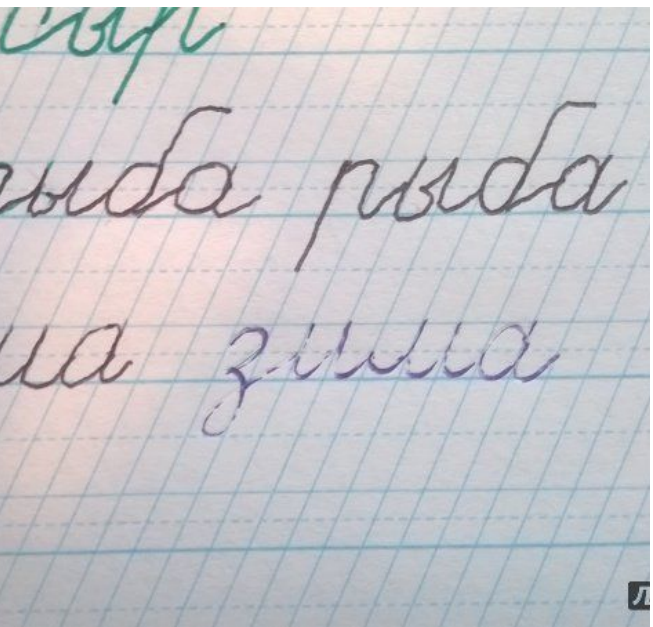 сыр
рыба рыба
зима